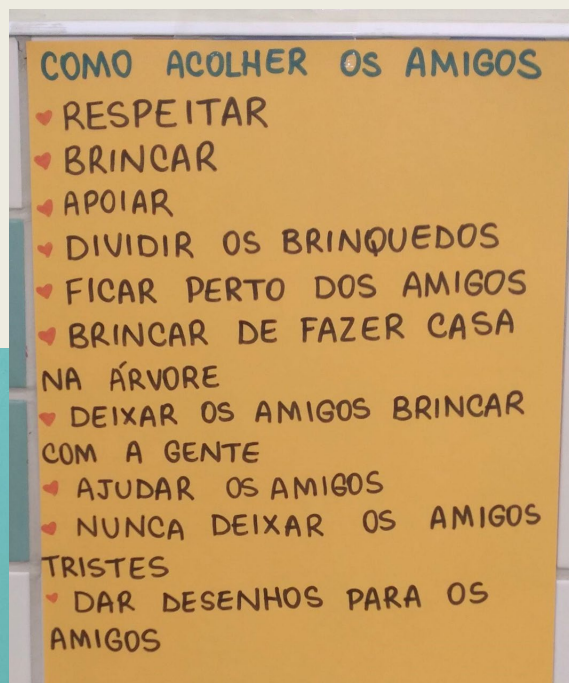 COMO ACOLHER OS AMIGOS
♥ RESPEITAR
♥ BRINCAR
♥ APOIAR
♥ DIVIDIR OS BRINQUEDOS
♥ FICAR PERTO DOS AMIGOS
♥ BRINCAR DE FAZER CASA
NA ÁRVORE
♥ DEIXAR OS AMIGOS BRINCAR
COM A GENTE
♥ AJUDAR OS AMIGOS
♥ NUNCA DEIXAR OS AMIGOS
TRISTES
♥ DAR DESENHOS PARA OS
AMIGOS